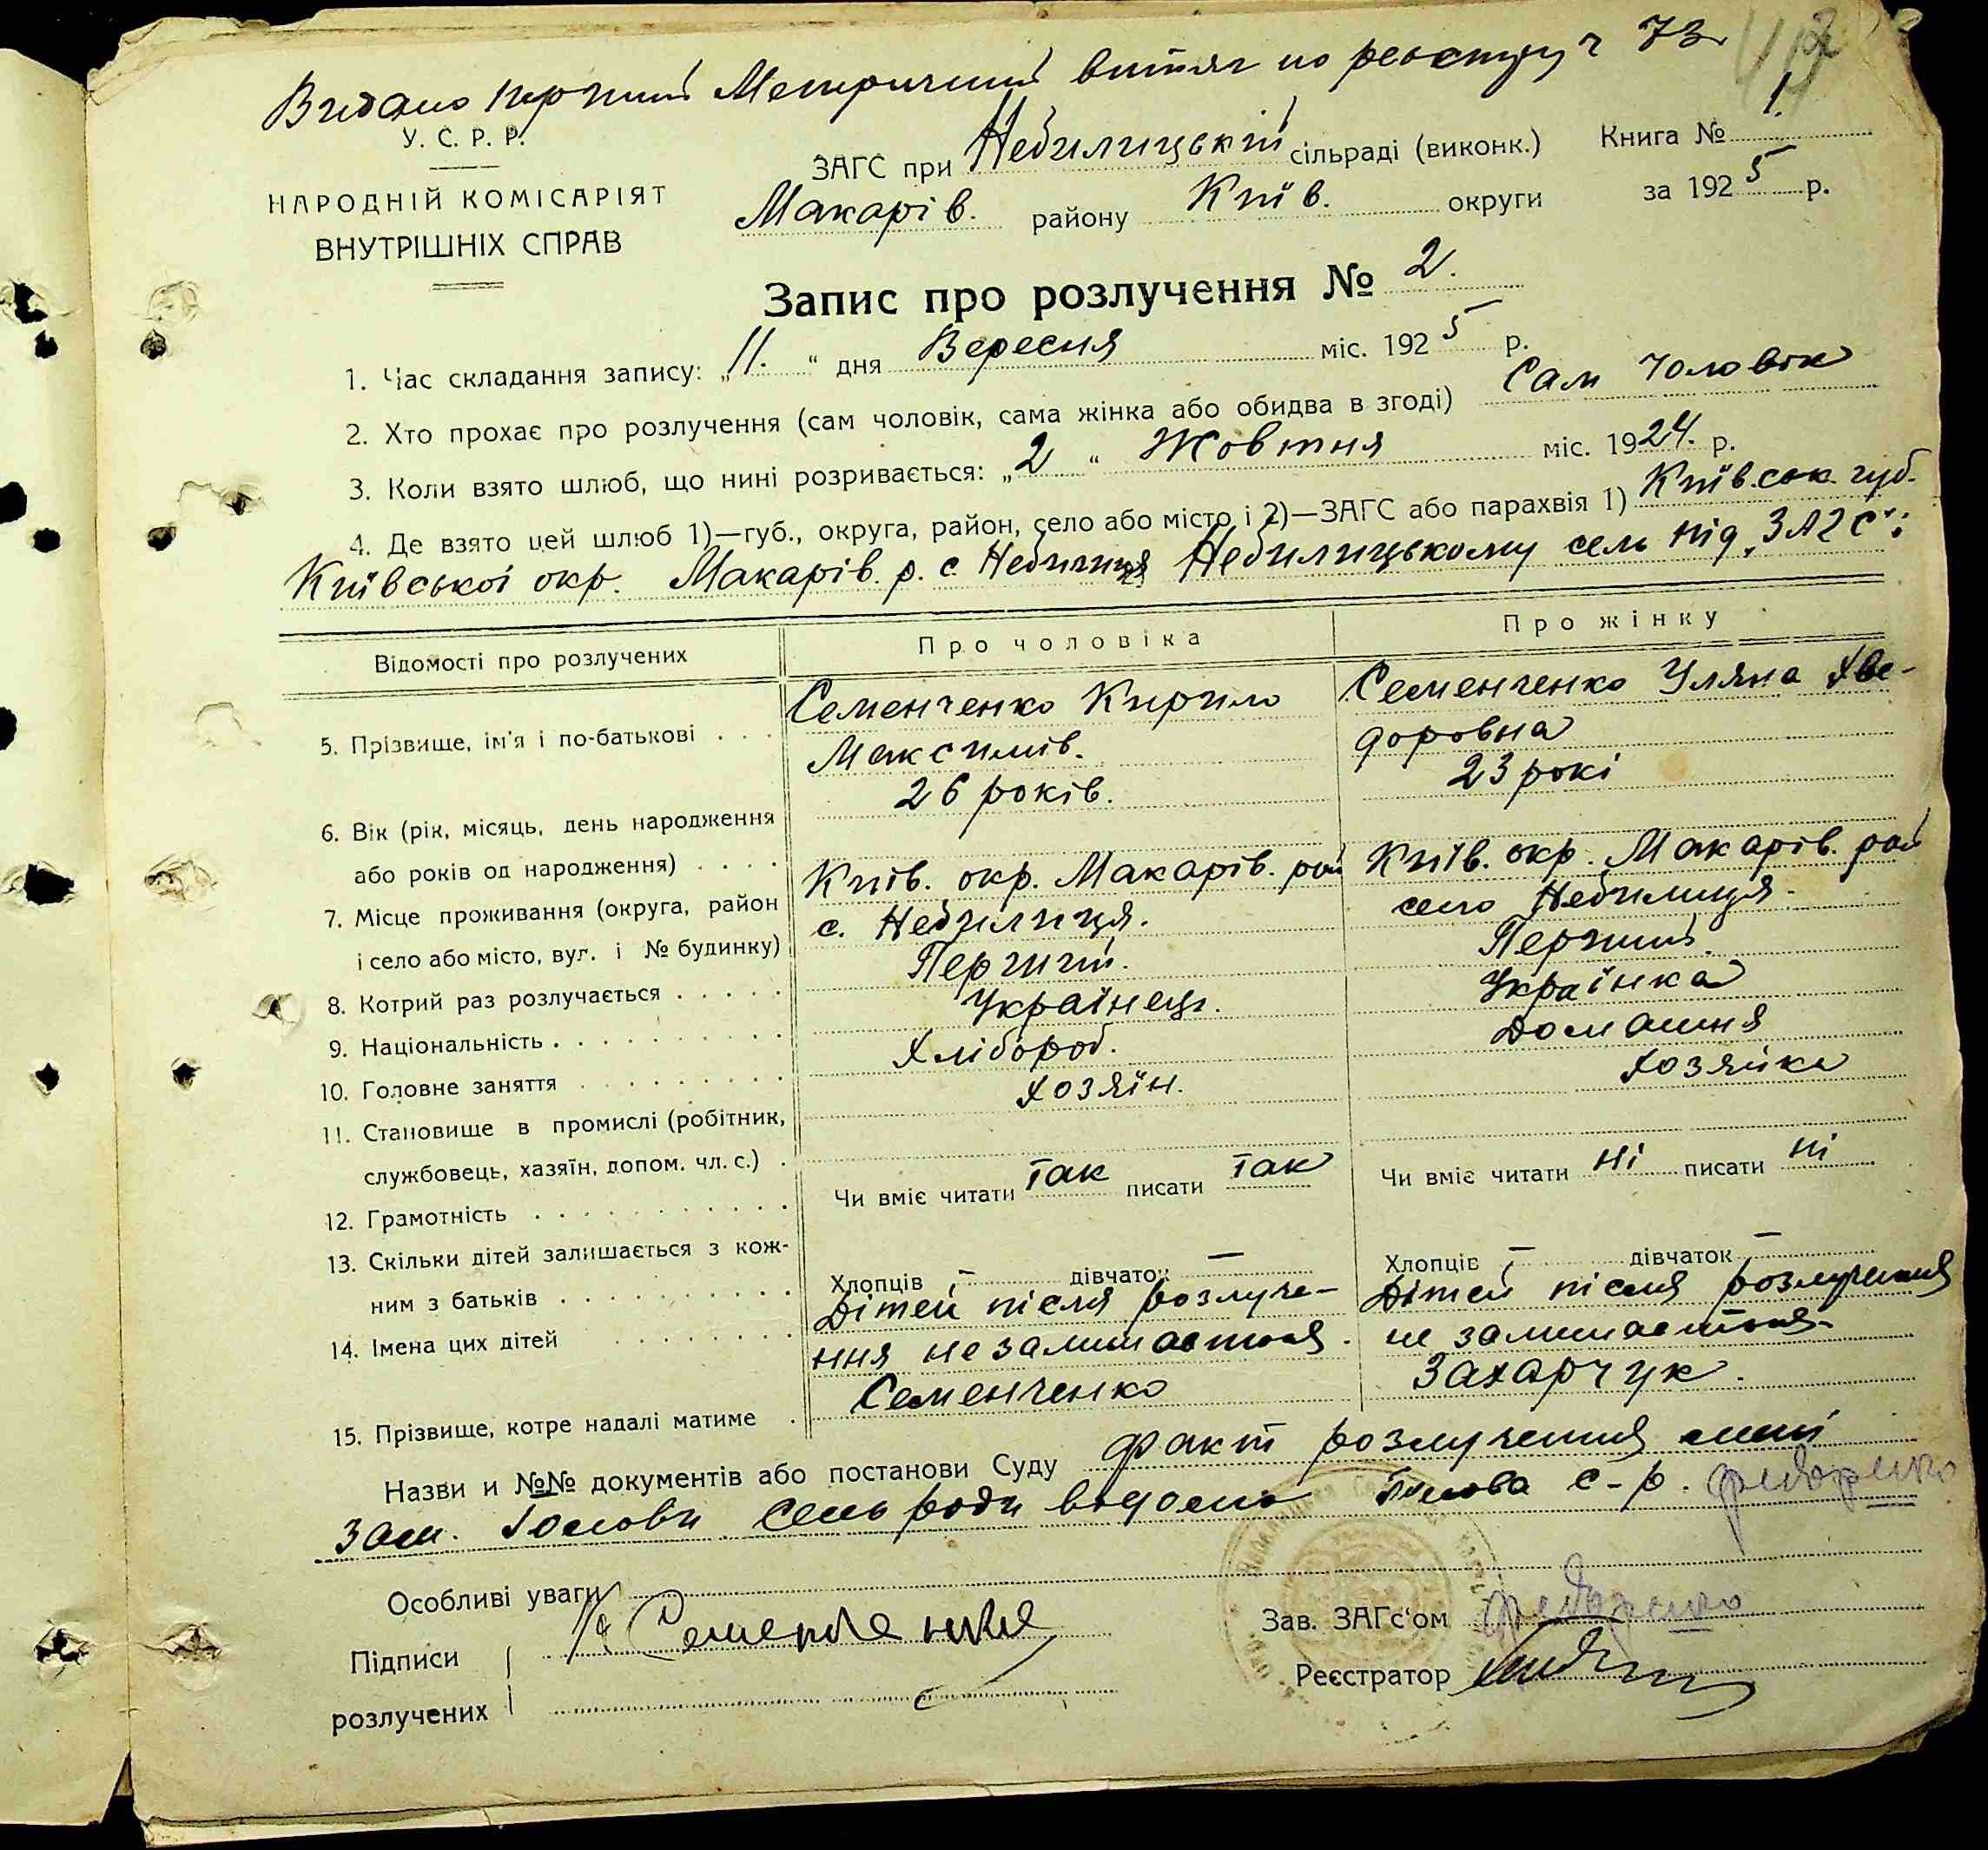 Видано перший Метричний витяг по реєстру ч 73
У. С. Р. Р.
НАРОДНІЙ КОМІСАРІЯТ
ВНУТРІШНІХ СПРАВ
ЗАГС при Небилицькій сільраді (виконк.) Книга № 1.
Макарів. району Київ. округи за 1925 р.
Запис про розлучення № 2.
1. Час складання запису: „11.“ дня Вересня міс. 1925 р.
2. Хто прохає про розлучення (сам чоловік, сама жінка або обидва в згоді) Сам чоловік
3. Коли взято шлюб, що нині розривається: „2“ Жовтня міс. 1924. р.
4. Де взято цей шлюб 1)—губ., округа, район, село або місто і 2)—ЗАГС або парахвія 1) Київ.ськ. губ.
Київської окр. Макарів. р. с Небилиця Небилицькому сель під „ЗАГС“:
Відомості про розлучених Про чоловіка Про жінку
5. Прізвище, ім'я і по-батькові Семенченко Кирило Максимів. Семенченко Уляна Хведоровна
6. Вік (рік, місяць, день народження або років од народження) 26 років. 23 рокі
7. Місце проживання (округа, район і село або місто, вул. і № будинку) Київ. окр. Макарів. рай с. Небилиця. Київ. окр. Макарів. рай село Небилиця.
8. Котрий раз розлучається Перший. Перший.
9. Національність Українець. Українка
10. Головне заняття Хлібороб. Домашня
11. Становище в промислі (робітник, службовець, хазяїн, допом. чл. с.) Хозяїн. Хозяйка
12. Грамотність Чи вміє читати так писати так Чи вміє читати ні писати ні
13. Скільки дітей залишається з кожним з батьків Хлопців — дівчаток — Хлопців — дівчаток —
14. Імена цих дітей Дітей після розлучення не залишається. Дітей після розлучення не залишається.
15. Прізвище, котре надалі матиме Семенченко Захарчук.
Назви и №№ документів або постанови Суду Факт розлучення
Зам. Голови сельради Голова с-р. Федоренко
Особливі уваги
Підписи розлучених К Семенченко
Зав. ЗАГс'ом Федоренко
Реєстратор